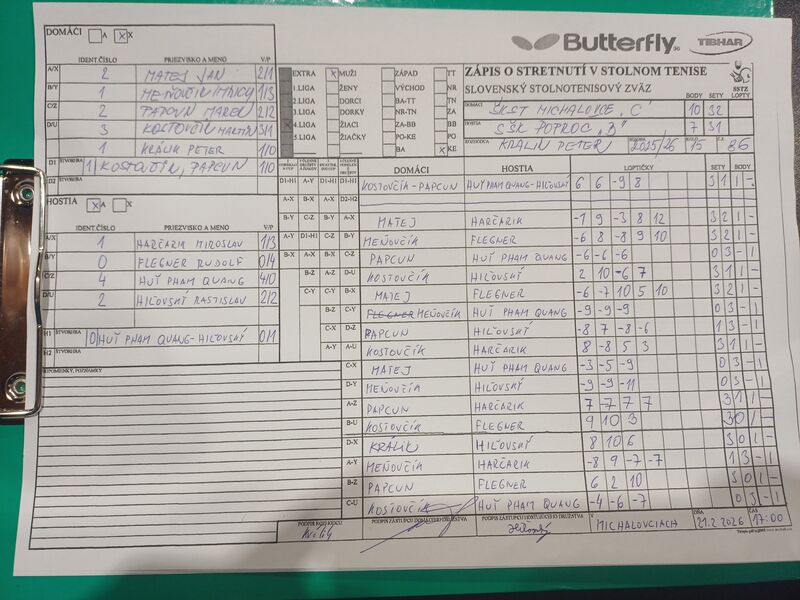 DOMÁCI A X
IDENT.ČÍSLO PRIEZVISKO A MENO V/P
A/X 2 MATEJ JÁN 2/1
B/Y 1 MEŇOVČÍK 1/3
C/Z 2 PAPCUN MAREK 2/2
D/U 3 KOSTOVČÍK MARTIN 3/1
1 KRÁLIK PETER 1/0
D1 ŠTVORHRA 1 KOSTOVČÍK, PAPCUN 1/0
D2
HOSTIA X A X
IDENT.ČÍSLO PRIEZVISKO A MENO V/P
A/X 1 HARČARIK MIROSLAV 1/3
B/Y 0 FLEGNER RUDOLF 0/4
C/Z 4 HUŤ PHAM QUANG 4/0
D/U 2 HIĽOVSKÝ RASTISLAV 2/2
H1 ŠTVORHRA 0 HUŤ PHAM QUANG-HIĽOVSKÝ 0/1
H2
PRIPOMIENKY, POZNÁMKY
EXTRA X MUŽI ZÁPAD TT
1.LIGA ŽENY VÝCHOD NR
2.LIGA DORCI BA-TT TN
3.LIGA DORKY NR-TN ZA
X 4.LIGA ŽIACI ZA-BB BB
5.LIGA ŽIAČKY PO-KE PO
BA X KE
Butterfly TIBHAR
ZÁPIS O STRETNUTÍ V STOLNOM TENISE
SLOVENSKÝ STOLNOTENISOVÝ ZVÄZ
SSTZ
BODY SETY LOPTY
DOMÁCI ŠKST MICHALOVCE "C" 10 32
HOSTIA SŠK POPROČ "B" 7 31
ROZHODCA KRÁLIK PETER 2025/26 15 86
DOMÁCI HOSTIA LOPTIČKY SETY BODY
D1-H1 A-Y D1-H1 D1-H1 KOSTOVČÍK-PAPCUN HUŤ PHAM QUANG-HIĽOVSKÝ 6 6 -9 8 3 1 1 -
A-X B-X A-X D2-H2
B-Y C-Z B-Y A-X MATEJ HARČARIK -7 9 -3 8 12 3 2 1 -
A-Y D1-H1 C-Z B-Y MEŇOVČÍK FLEGNER -6 8 -8 9 10 3 2 1 -
B-X A-X B-X C-Z PAPCUN HUŤ PHAM QUANG -6 -6 -6 0 3 - 1
B-Z A-Z D-U KOSTOVČÍK HIĽOVSKÝ 2 10 -6 7 3 1 1 -
C-Y C-Y B-X MATEJ FLEGNER -6 -7 10 5 10 3 2 1 -
B-Z C-Y MEŇOVČÍK HUŤ PHAM QUANG -9 -9 -9 0 3 - 1
C-X D-Z PAPCUN HIĽOVSKÝ -8 7 -8 -6 1 3 - 1
A-Y A-U KOSTOVČÍK HARČARIK 8 -8 5 3 3 1 1 -
C-X MATEJ HUŤ PHAM QUANG -3 -5 -9 0 3 - 1
D-Y MEŇOVČÍK HIĽOVSKÝ -9 -9 -11 0 3 - 1
A-Z PAPCUN HARČARIK 7 -7 7 7 3 1 1 -
B-U KOSTOVČÍK FLEGNER 9 10 3 3 0 1 -
D-X KRÁLIK HIĽOVSKÝ 8 10 6 3 0 1 -
A-Y MEŇOVČÍK HARČARIK -8 9 -7 -7 1 3 - 1
B-Z PAPCUN FLEGNER 6 2 10 3 0 1 -
C-U KOSTOVČÍK HUŤ PHAM QUANG -4 -6 -7 0 3 - 1
PODPIS ROZHODCU PODPIS ZÁSTUPCU DOMÁCEHO DRUŽSTVA PODPIS ZÁSTUPCU HOSŤUJÚCEHO DRUŽSTVA V MICHALOVCIACH DŇA 21.2.2026 ČAS 17:00